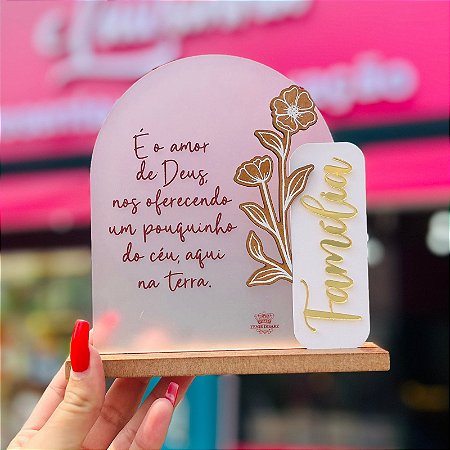 É o amor
de Deus,
nos oferecendo
um pouquinho
do céu, aqui
na terra.
Família